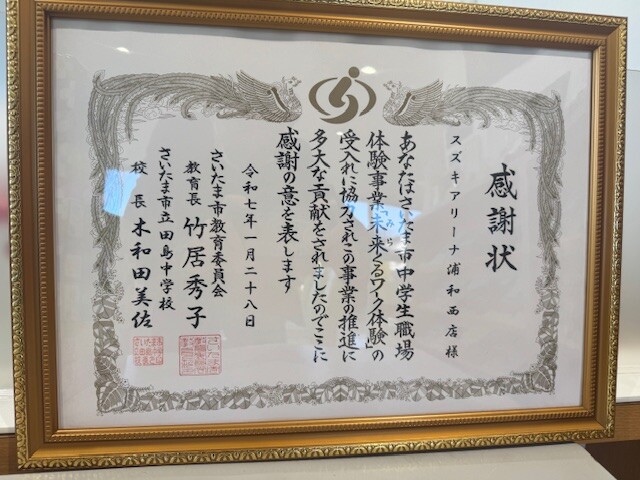 感謝状
スズキアリーナ浦和西店様
あなたはさいたま市中学生職場
体験事業「未来くるワーク体験」の
受入れに協力されこの事業の推進に
多大な貢献をされましたのでここに
感謝の意を表します
令和七年一月二十八日
さいたま市教育委員会
教育長 竹居秀子
さいたま市立田島中学校
校長 木和田美佐